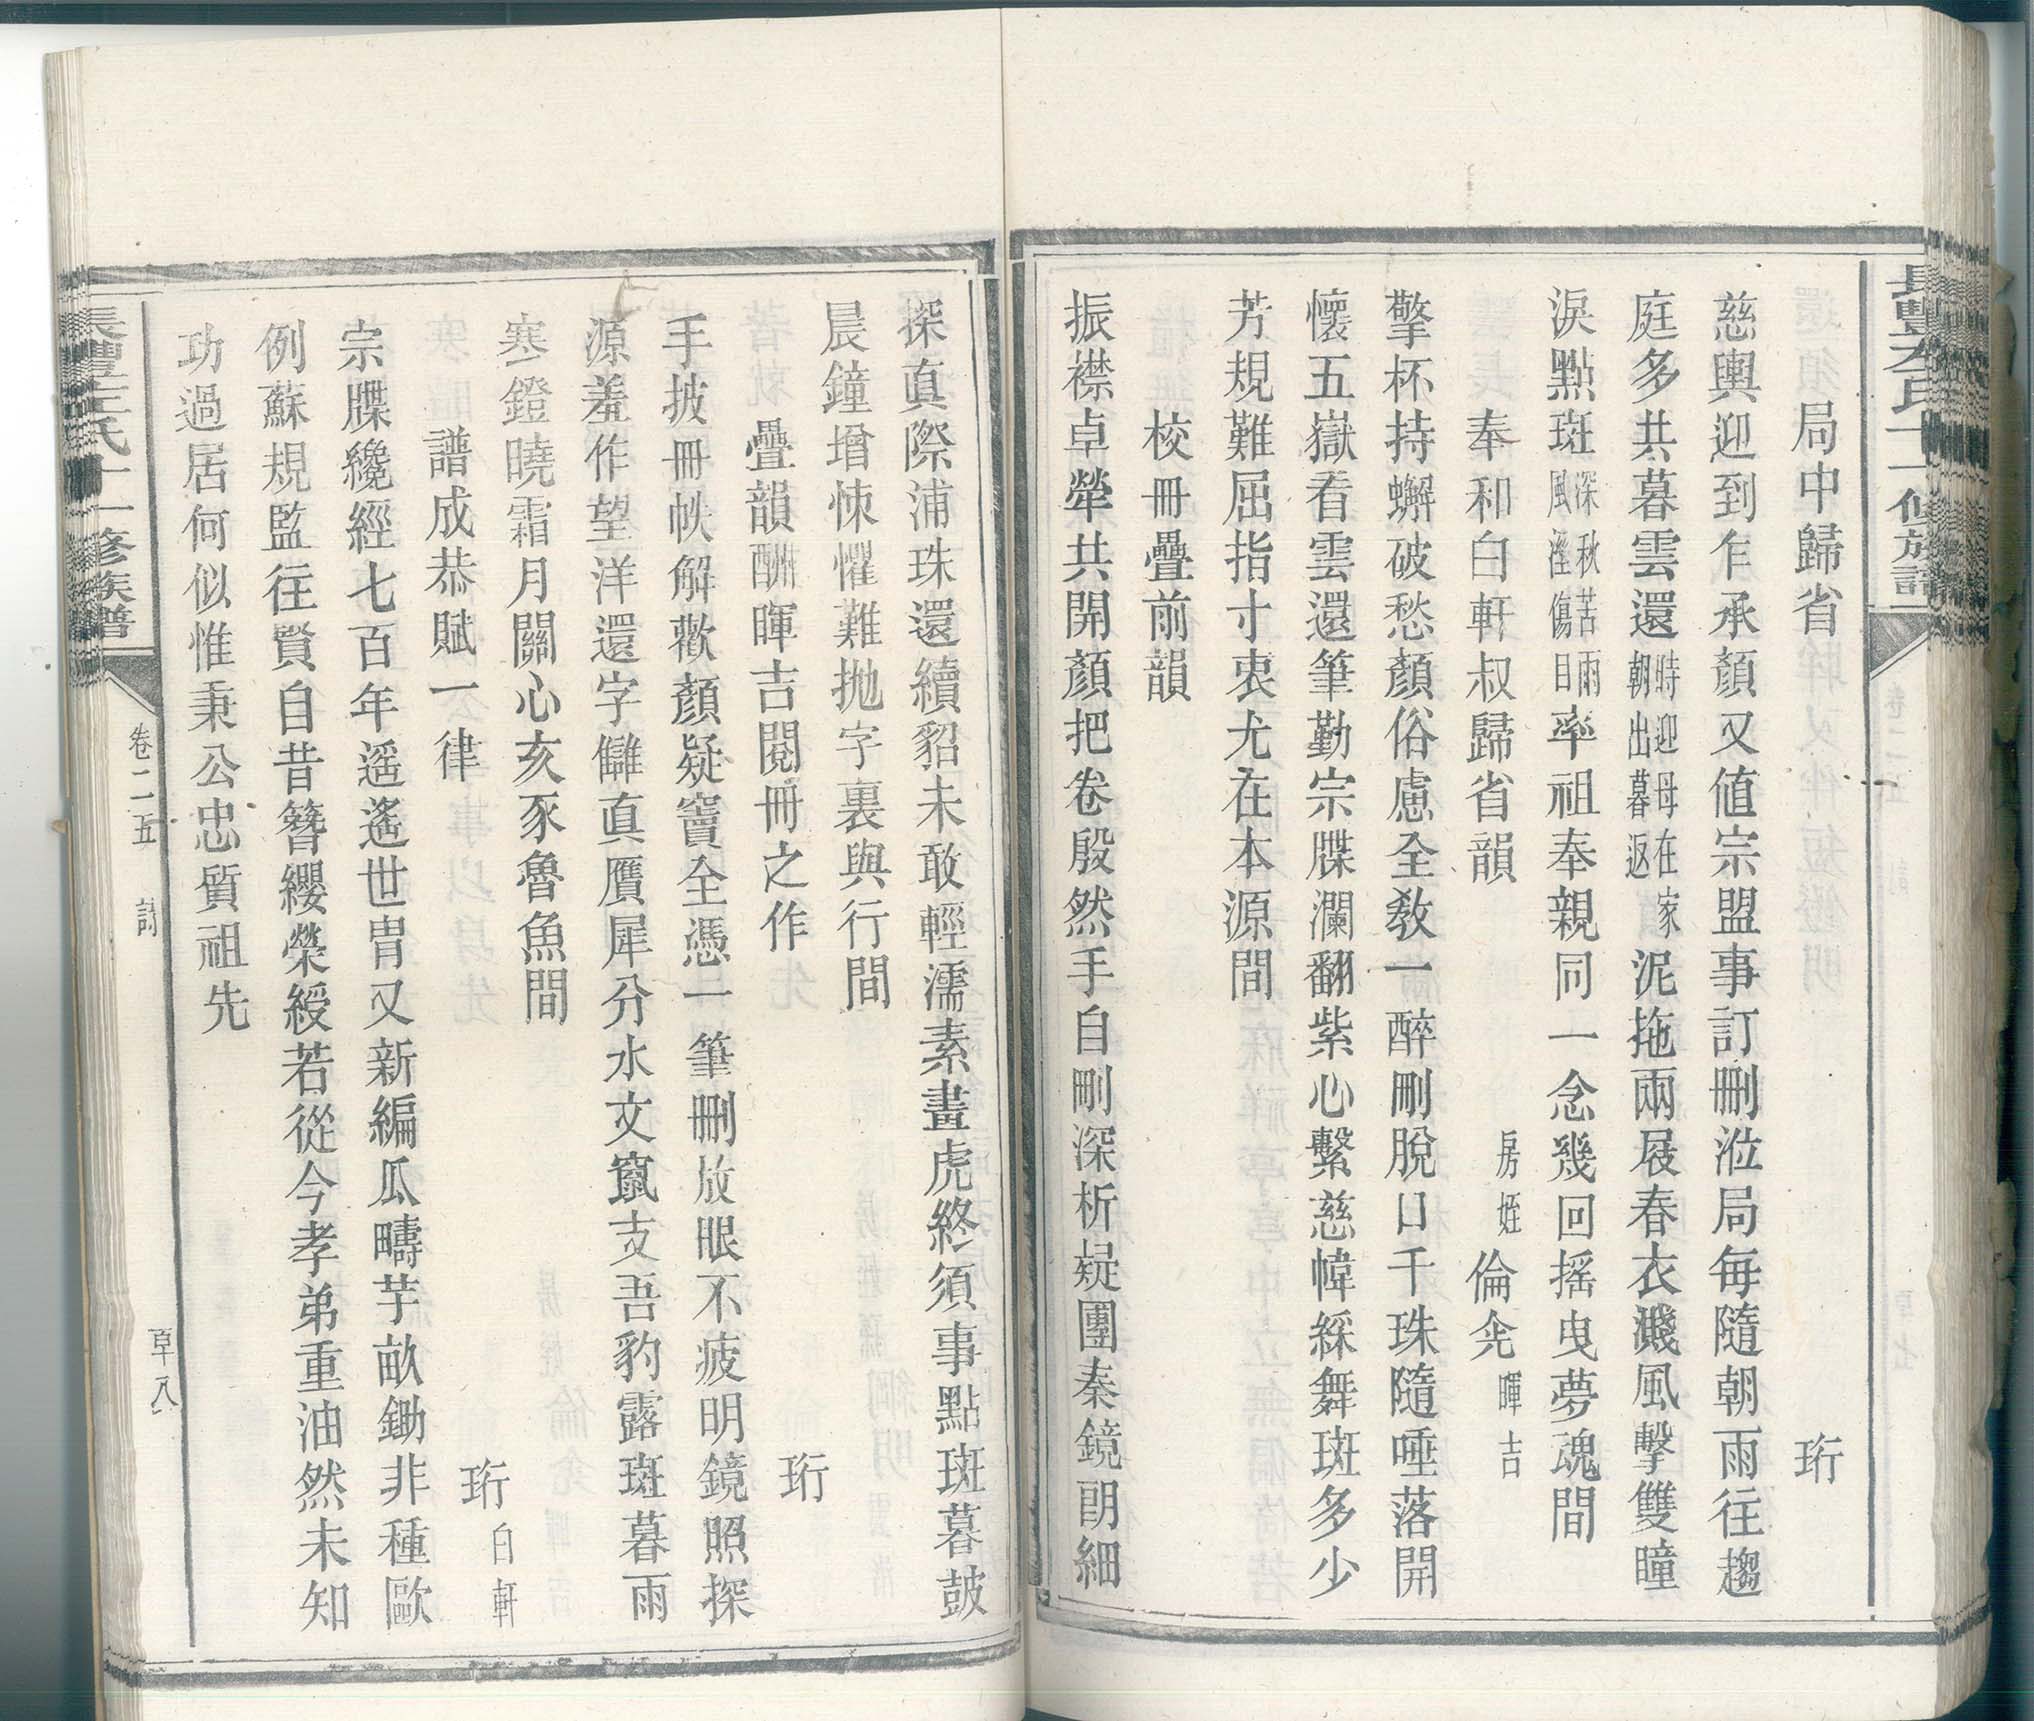 局中歸省　珩
慈輿迎到乍承顏又值宗盟事訂刪涖局每隨朝雨往趨
庭多共暮雲還時迎母在家朝出暮返泥拖兩屐春衣濺風擊雙瞳
淚點斑深秋苦雨風溼傷目率祖奉親同一念幾回搖曳夢魂間
奉和白軒叔歸省韻　房姪倫兊暉吉
擎杯持蠏破愁顏俗慮全教一醉刪脫口千珠隨唾落開
懷五嶽看雲還筆勤宗牒瀾翻紫心繫慈幃綵舞斑多少
芳規難屈指寸衷尤在本源間
校冊疊前韻
振襟卓犖共開顏把卷殷然手自刪深析疑團秦鏡朗細
探真際浦珠還續貂未敢輕濡素畫虎終須事點斑暮鼓
晨鐘增悚懼難拋字裏與行間
疊韻酬暉吉閱冊之作　珩
手披冊帙解歡顏疑竇全憑一筆刪放眼不疲明鏡照探
源羞作望洋還字讎真贗犀分水文竄支吾豹露斑暮雨
寒鐙曉霜月關心亥豕魯魚間
譜成恭賦一律　珩白軒
宗牒纔經七百年遥遙世冑又新編瓜疇芋畝鋤非種歐
例蘇規監往賢自昔簪纓榮綬若從今孝弟重油然未知
功過居何似惟秉公忠質祖先
卷二五　詩